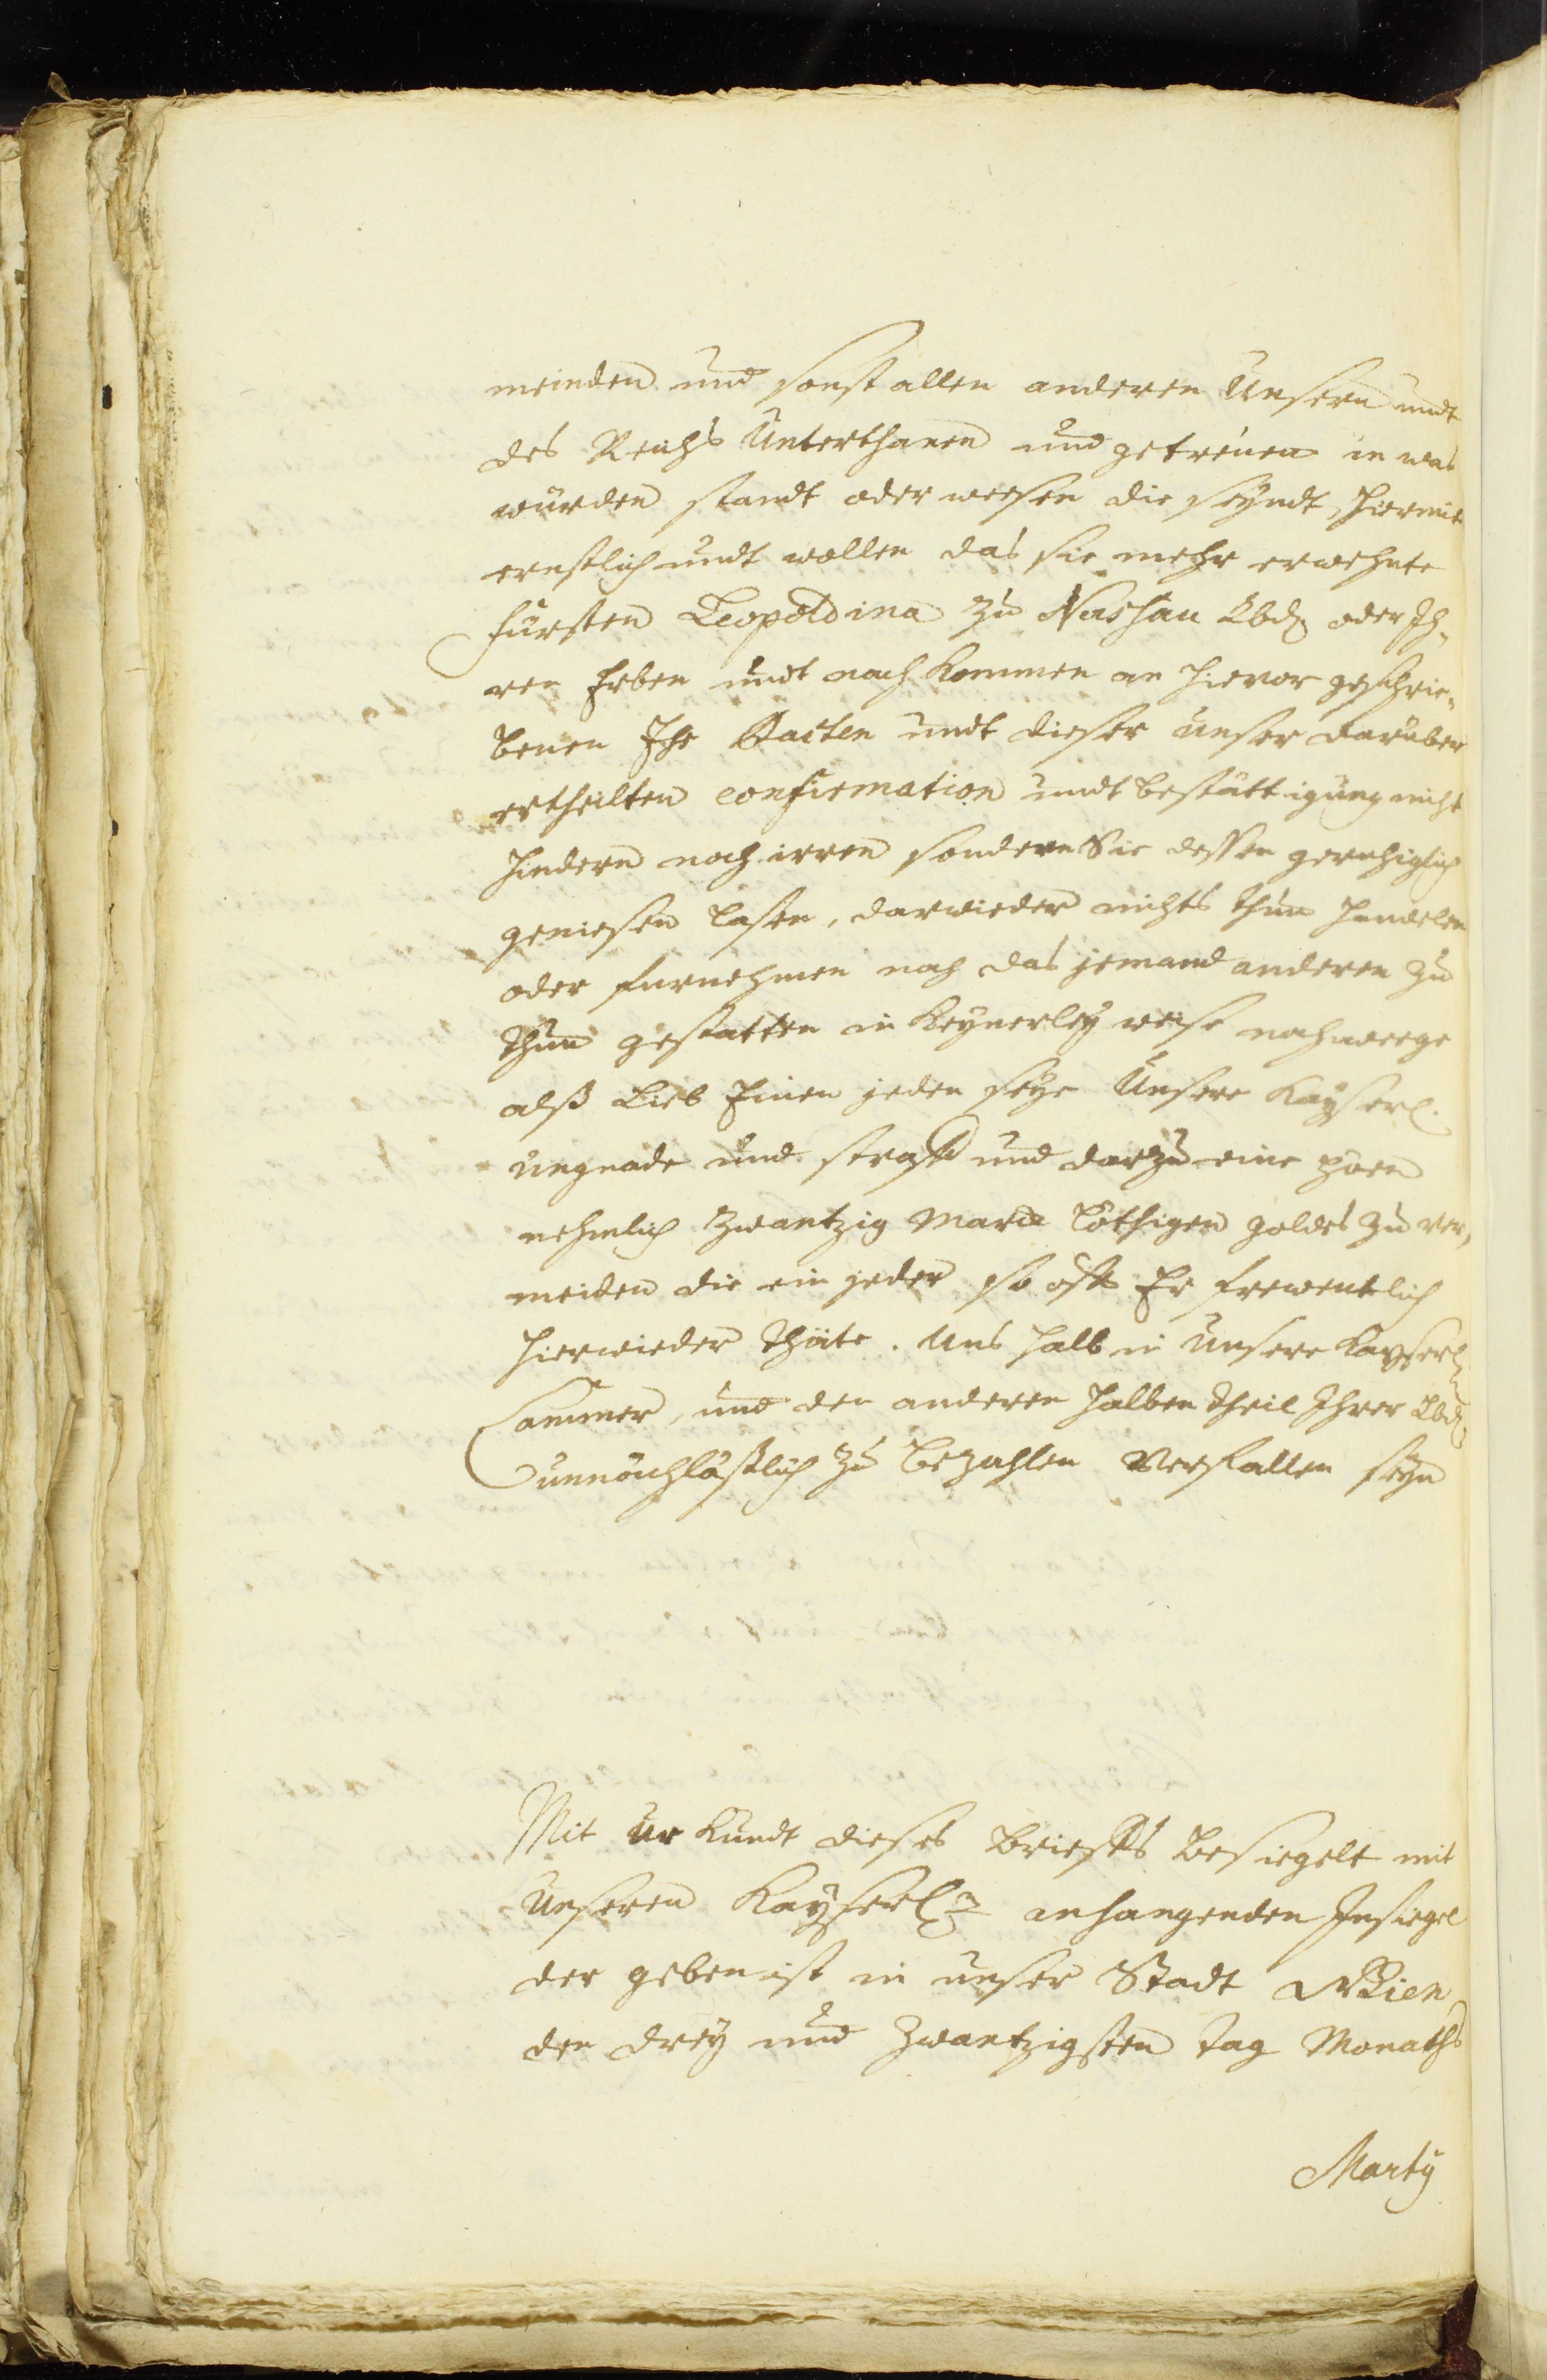 meinden und sonst allen anderen Unsern undt
des Reichs Unterthanen und getreuen in was
würden standt oder weesen die seyndt, hiermit
ernstlich undt wollen das sie mehr erwehnte
fürsten Leopoldina zu Nassau Lbd oder Ih¬
ren Erben undt nach kommen an hievor geschrie¬
benen Ihr Pacten undt dieser unser darüber
ertheilten confirmation undt bestättigung nicht
hindern noch irren sondern Sie dessen geruhiglich
geniesen lasen, darwieder nichts thun handelen
oder furnehmen noch das jemand anderen zu
thun gestatten in keynerley weise noch weege
alß Lieb Einen jeden seye Unsere Kayserl.
ungnade und straff und darzu eine poen
nehmlich zwantzig Marck löthigen goldes zu ver¬
meiden die ein jeder so offt Er frewentlich
hierwieder thäte. Uns halb in Unsere Kayserl
Cammer, und den anderen halben theil Ihrer Lbd
unnachläßlich zu bezahlen Verfallen seyn
Mit ur kundt dieses brieffs besiegelt mit
Unseren Kayserl anhangenden Insiegel
der geben ist in unser Stadt Wien
den drey und zwantzigsten tag Monaths
Marty